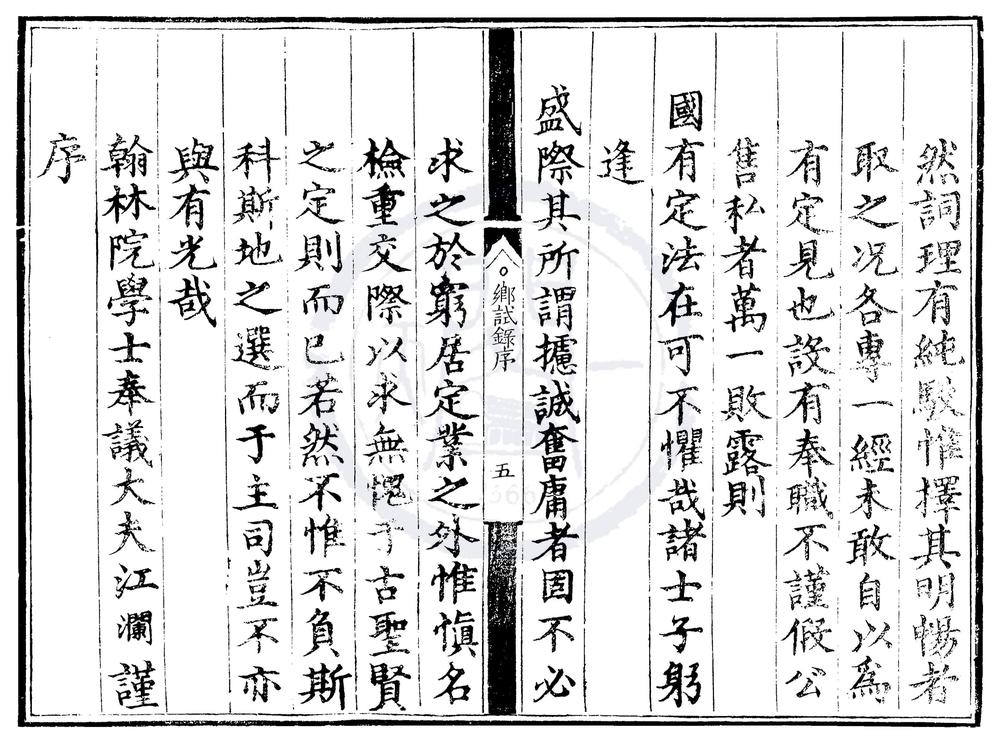 然詞理有純駁惟擇其明暢者
取之况各專一經未敢自以為
有定見也設有奉職不謹假公
售私者萬一敗露則
國有定法在可不懼哉諸士子躬
逢
盛際其所謂攄誠奮庸者固不必
鄉試錄序
五
求之於窮居定業之外惟愼名
檢重交際以求無愧于古聖賢
之定則而已若然不惟不負斯
科斯地之選而于主司豈不亦
與有光哉
翰林院學士奉議大夫江瀾謹
序